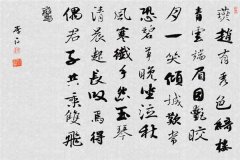 燕趙有秀色綺樓
青雲端眉目艷皎
月一笑傾城歡常
恐碧草晚坐泣秋
風寒纖手怨玉琴
清晨起長叹焉得
偶君子共乘雙飛
鸞